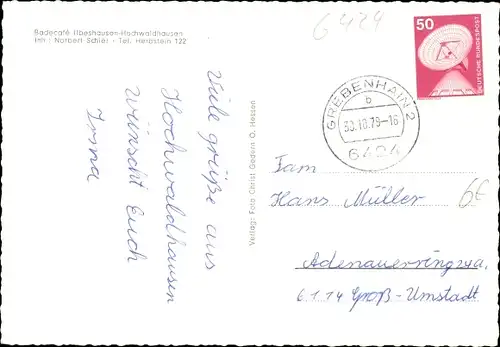 Badecafé Ilbeshausen-Hochwaldhausen
Inh.: Norbert Schlier - Tel. Herbstein 122
6424
50
DEUTSCHE BUNDESPOST
GREBENHAIN 2
b
30.10.79-16
6424
Viele grüße aus
Hochwaldhausen
wünscht Euch
Irma
Verlag: Foto Christ Gedern O. Hessen
Fam
Hans Müller
6€
Adenauerring 24a,
6114 Groß-Umstadt